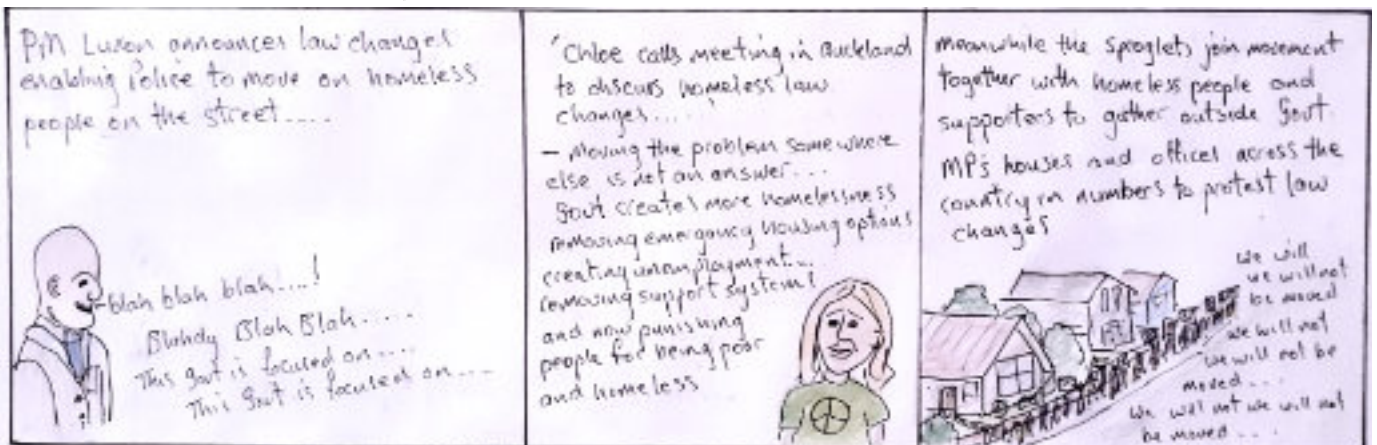 PM Luxon announces law changes
enabling Police to move on homeless
people on the street....
blah blah blah....!
Blahdy Blah Blah.....
This govt is focused on....
This govt is focused on....
"Chloe calls meeting in Auckland
to discuss homeless law
changes.....'
- Moving the problem somewhere
else is not an answer...
Govt creates more homelessness
removing emergency housing options
creating unemployment...
removing support systems!
and now punishing
people for being poor
and homeless
Meanwhile the Sproglets join movement
together with homeless people and
supporters to gather outside Govt.
MP's houses and offices across the
country in numbers to protest law
changes
we will
we will not
be moved
we will not
we will not be
moved...
we will not we will not
be moved...